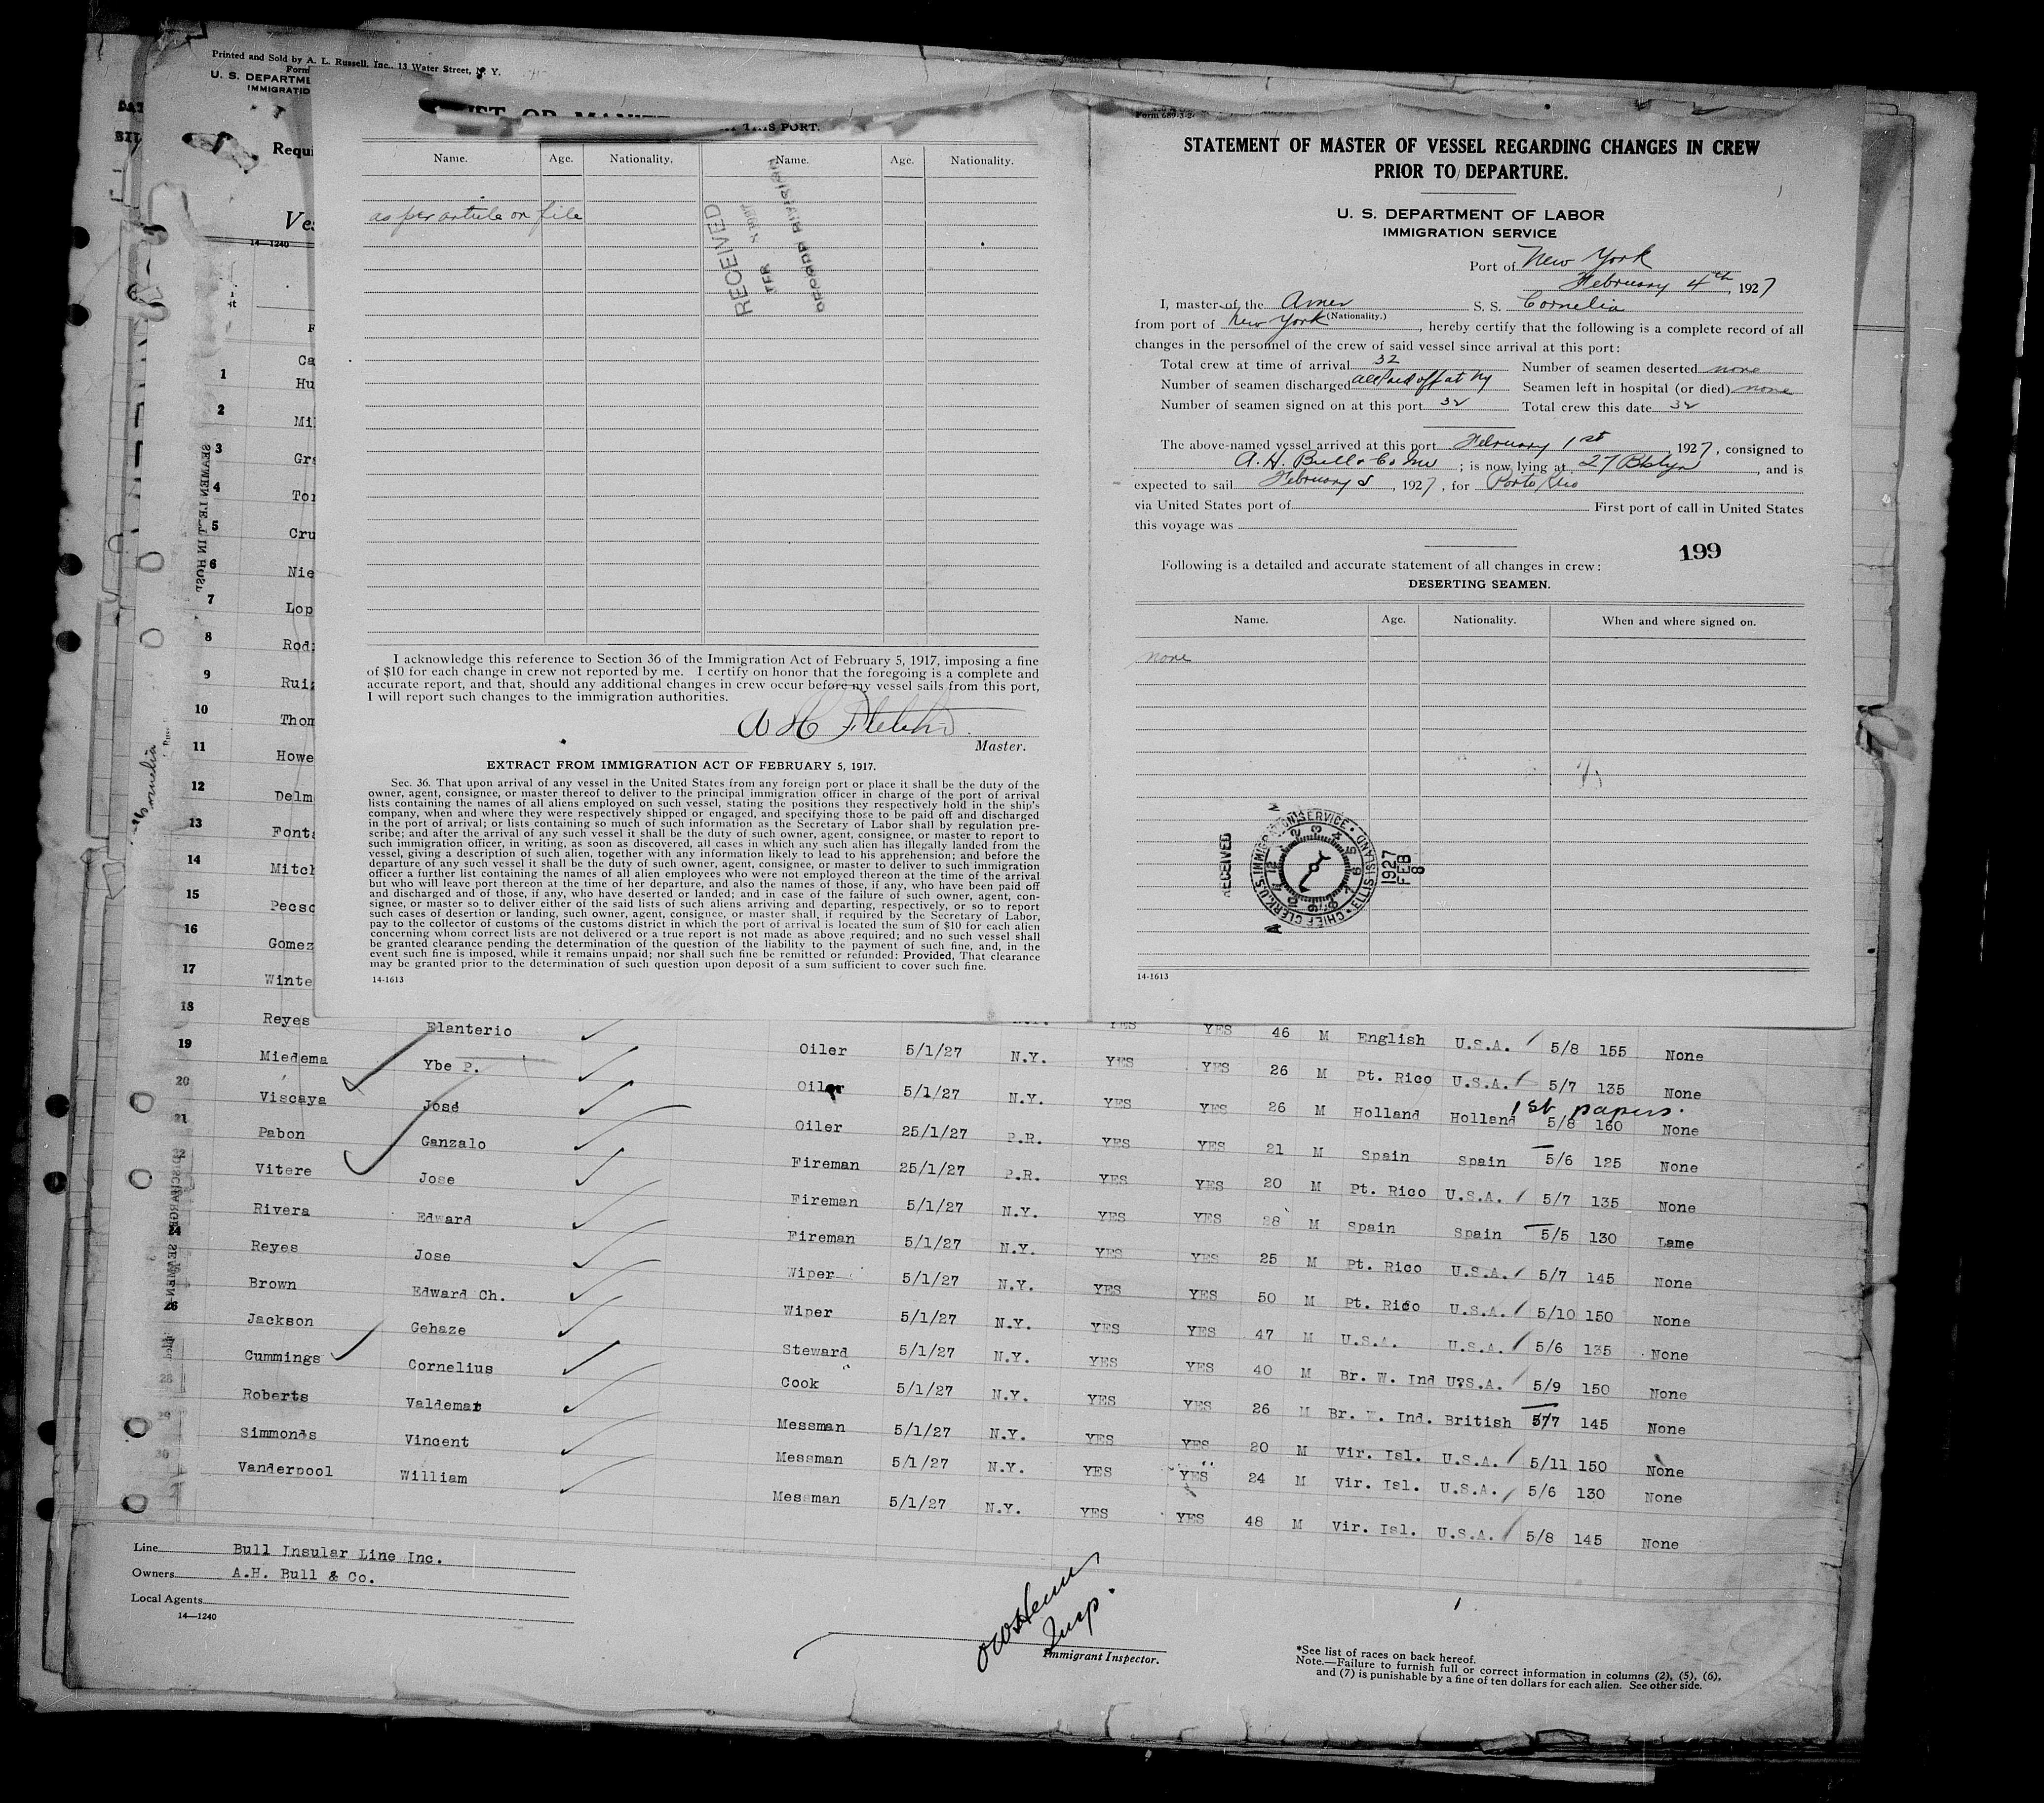 Printed and Sold by A. L. Russell, Inc., 13 Water Street, N. Y.
Form
U. S. DEPARTME
IMMIGRATIO
Requi
Ves
14—1240
THIS PORT.
Name. Age. Nationality. Name. Age. Nationality.
as per article on file
RECEIVED
RECORD DIVISION
I acknowledge this reference to Section 36 of the Immigration Act of February 5, 1917, imposing a fine
of $10 for each change in crew not reported by me. I certify on honor that the foregoing is a complete and
accurate report, and that, should any additional changes in crew occur before my vessel sails from this port,
I will report such changes to the immigration authorities.
Master.
EXTRACT FROM IMMIGRATION ACT OF FEBRUARY 5, 1917.
Sec. 36. That upon arrival of any vessel in the United States from any foreign port or place it shall be the duty of the
owner, agent, consignee, or master thereof to deliver to the principal immigration officer in charge of the port of arrival
lists containing the names of all aliens employed on such vessel, stating the positions they respectively hold in the ship's
company, when and where they were respectively shipped or engaged, and specifying those to be paid off and discharged
in the port of arrival; or lists containing so much of such information as the Secretary of Labor shall by regulation pre-
scribe; and after the arrival of any such vessel it shall be the duty of such owner, agent, consignee, or master to report to
such immigration officer, in writing, as soon as discovered, all cases in which any such alien has illegally landed from the
vessel, giving a description of such alien, together with any information likely to lead to his apprehension; and before the
departure of any such vessel it shall be the duty of such owner, agent, consignee, or master to deliver to such immigration
officer a further list containing the names of all alien employees who were not employed thereon at the time of the arrival
but who will leave port thereon at the time of her departure, and also the names of those, if any, who have been paid off
and discharged and of those, if any, who have deserted or landed; and in case of the failure of such owner, agent, con-
signee, or master so to deliver either of the said lists of such aliens arriving and departing, respectively, or so to report
such cases of desertion or landing, such owner, agent, consignee, or master shall, if required by the Secretary of Labor,
pay to the collector of customs of the customs district in which the port of arrival is located the sum of $10 for each alien
concerning whom correct lists are not delivered or a true report is not made as above required; and no such vessel shall
be granted clearance pending the determination of the question of the liability to the payment of such fine, and, in the
event such fine is imposed, while it remains unpaid; nor shall such fine be remitted or refunded: Provided, That clearance
may be granted prior to the determination of such question upon deposit of a sum sufficient to cover such fine.
14-1613
STATEMENT OF MASTER OF VESSEL REGARDING CHANGES IN CREW
PRIOR TO DEPARTURE.
U. S. DEPARTMENT OF LABOR
IMMIGRATION SERVICE
Port of New York
February 4th, 1927
I, master of the Amer S. S. Cornelia
(Nationality.)
from port of New York, hereby certify that the following is a complete record of all
changes in the personnel of the crew of said vessel since arrival at this port:
Total crew at time of arrival 32 Number of seamen deserted none
Number of seamen discharged all paid off at Ny Seamen left in hospital (or died) none
Number of seamen signed on at this port 32 Total crew this date 32
The above-named vessel arrived at this port February 1st 1927, consigned to
A. H. Bull & Co Inc; is now lying at 27 Bklyn, and is
expected to sail February 5, 1927, for Porto Rico
via United States port of First port of call in United States
this voyage was
199
Following is a detailed and accurate statement of all changes in crew:
DESERTING SEAMEN.
Name. Age. Nationality. When and where signed on.
none
RECEIVED
CHIEF CLERK, U.S. IMMIGRATION SERVICE • ELLIS ISLAND •
1927 FEB 8
14-1613
Ca
1 Hu
2 Mil
3 Gra
4 Tor
5 Cru
6 Nie
7 Lop
8 Rod
9 Rui
10 Thom
11 Howe
12 Delm
13 Fonta
14 Mitch
15 Pecso
16 Gomez
17 Winte YES YES 46 M English U.S.A. 5/8 155 None
18 Reyes Elanterio Oiler 5/1/27 N.Y. YES YES 26 M Pt. Rico U.S.A. 5/7 135 None
19 Miedema Ybe P. Oiler 5/1/27 N.Y. YES YES 26 M Holland Holland 1st papers. 5/8 160 None
20 Viscaya José Oiler 25/1/27 P.R. YES YES 21 M Spain Spain 5/6 125 None
21 Pabon Ganzalo Fireman 25/1/27 P.R. YES YES 20 M Pt. Rico U.S.A. 5/7 135 None
22 Vitere Jose Fireman 5/1/27 N.Y. YES YES 28 M Spain Spain 5/5 130 Lame
Rivera Edward Fireman 5/1/27 N.Y. YES YES 25 M Pt. Rico U.S.A. 5/7 145 None
24 Reyes Jose Wiper 5/1/27 N.Y. YES YES 50 M Pt. Rico U.S.A. 5/10 150 None
Brown Edward Ch. Wiper 5/1/27 N.Y. YES YES 47 M U.S.A. U.S.A. 5/6 135 None
26 Jackson Gehaze Steward 5/1/27 N.Y. YES YES 40 M Br. W. Ind U.S.A. 5/9 150 None
Cummings Cornelius Cook 5/1/27 N.Y. YES YES 26 M Br. W. Ind. British 5/7 145 None
28 Roberts Valdemar Messman 5/1/27 N.Y. YES YES 20 M Vir. Isl. U.S.A. 5/11 150 None
29 Simmonds Vincent Messman 5/1/27 N.Y. YES YES 24 M Vir. Isl. U.S.A. 5/6 130 None
30 Vanderpool William Messman 5/1/27 N.Y. YES YES 48 M Vir. Isl. U.S.A. 5/8 145 None
Line Bull Insular Line Inc.
Owners A.H. Bull & Co.
Local Agents
14—1240
Insp.
Immigrant Inspector.
*See list of races on back hereof.
Note.—Failure to furnish full or correct information in columns (2), (5), (6),
and (7) is punishable by a fine of ten dollars for each alien. See other side.